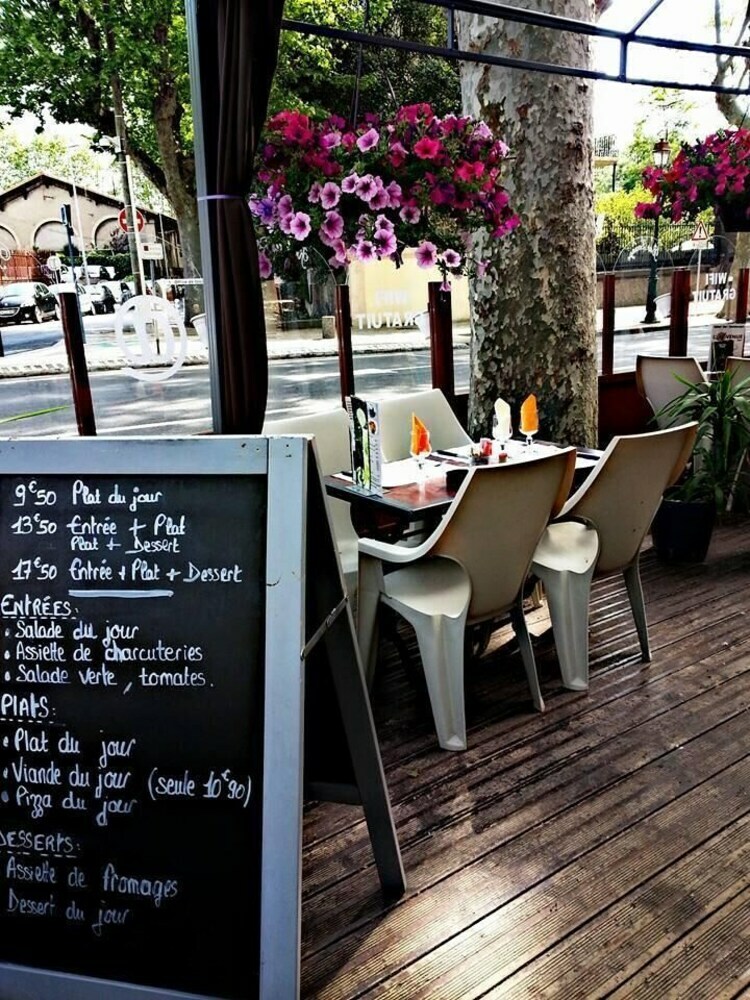 9€50 Plat du jour
13€50 Entrée + Plat
Plat + Dessert
17€50 Entrée + Plat + Dessert
ENTRÉES:
• Salade du jour
• Assiette de charcuteries
• Salade verte, tomates.
PLATS:
• Plat du jour
• Viande du jour (seule 10€90)
• Pizza du jour
DESSERTS:
Assiette de fromages
Dessert du jour
WIFI
GRATUIT
WIFI
GRATUIT